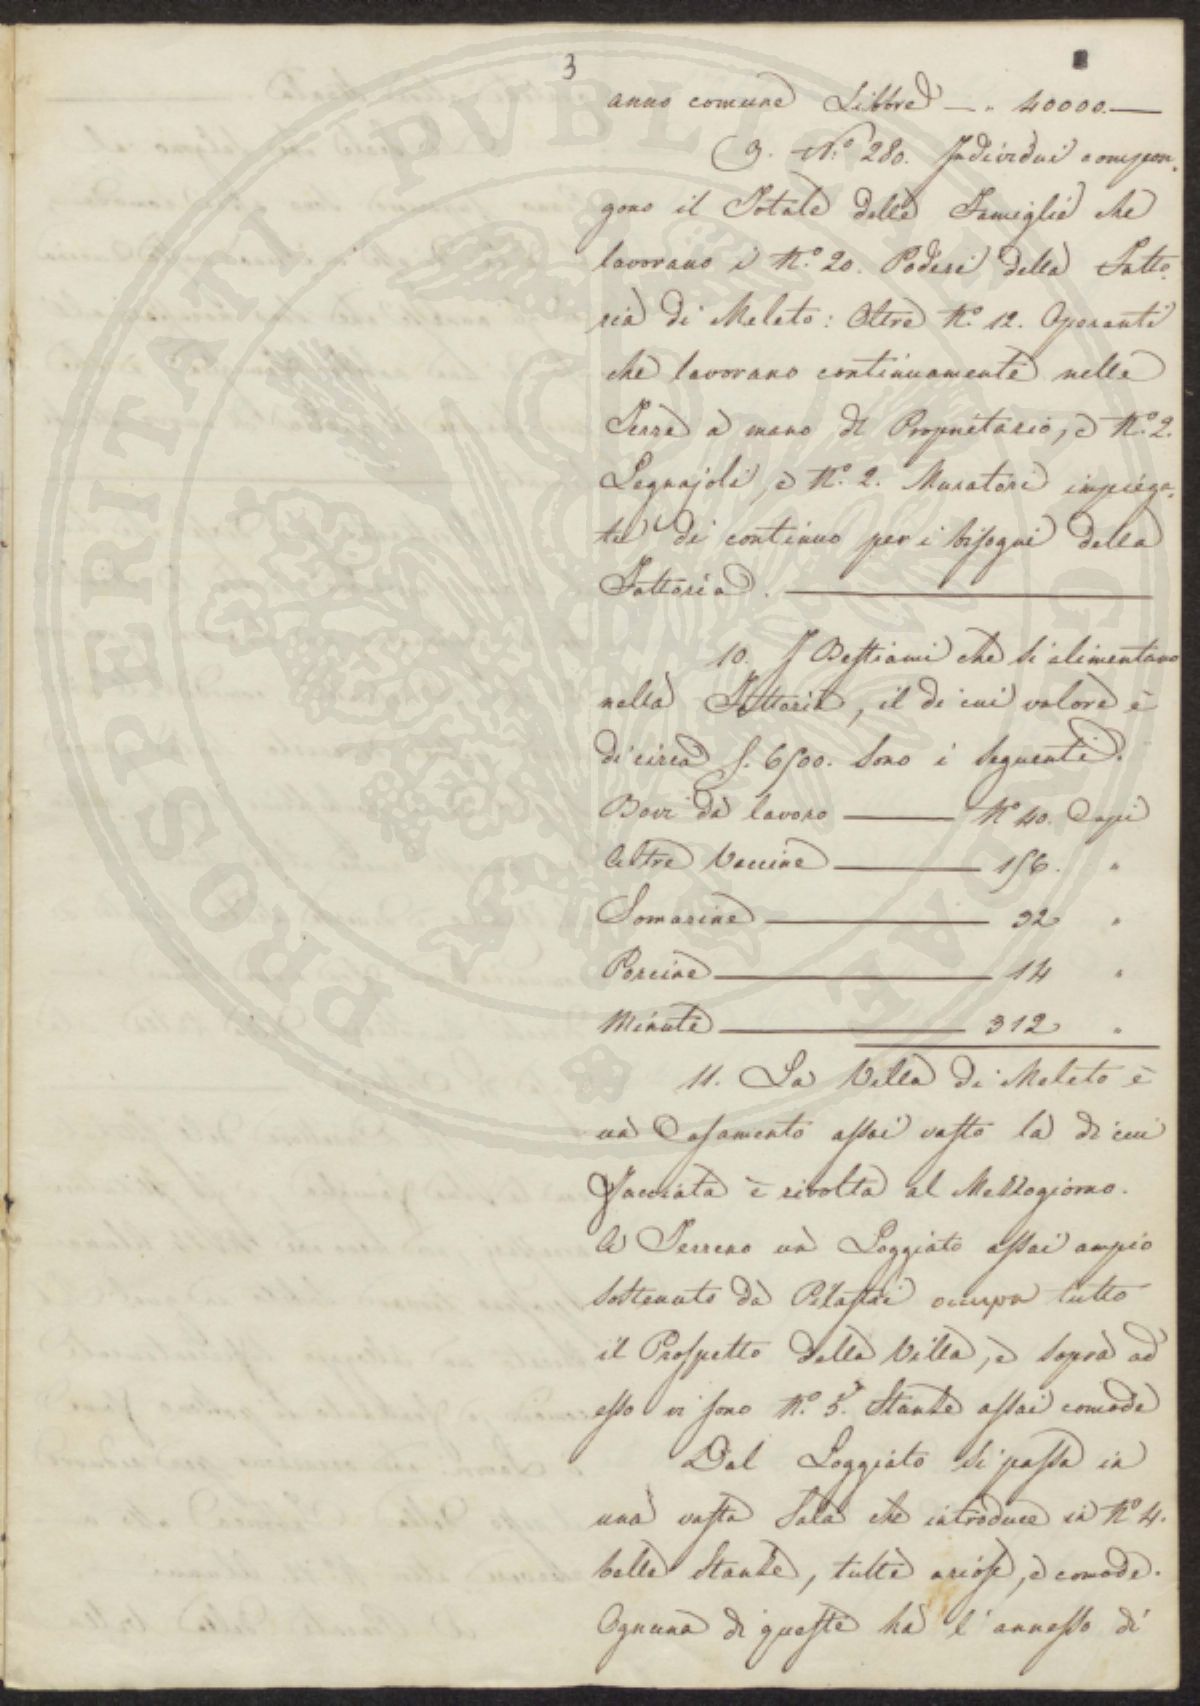 3
anno comune Libbre — „ 40000.—
9. N.º 280. Individui compon-
gono il Totale delle Famiglie che
lavorano i N.º 20. Poderi della Fatto-
ria di Meleto: Oltre N.º 12. Operanti
che lavorano continuamente nelle
Terre a mano del Proprietario, e N.º 2.
Legnajoli, e N.º 2. Muratori impiega-
ti di continuo per i bisogni della
Fattoria.
10. I Bestiami che si alimentano
nella Fattoria, il di cui valore è
di circa s. 6500. sono i seguenti.
Bovi da lavoro — N.º 40. Capi
Altre Vaccine — 156. „
Somarine — 32 „
Porcine — 14 „
Minute — 312 „
11. La Villa di Meleto è
un Casamento assai vasto la di cui
Facciata è rivolta al Mezzogiorno.
A Terreno un Loggiato assai ampio
sostenuto da Pilastri occupa tutto
il Prospetto della Villa, e sopra ad
esso vi sono N.º 5. Stanze assai comode
Dal Loggiato si passa in
una vasta Sala che introduce in N.º 4.
belle Stanze, tutte ariose, e comode.
Ognuna di queste ha l'annesso di
PROSPERITATI PVBLICAE AVGENDAE